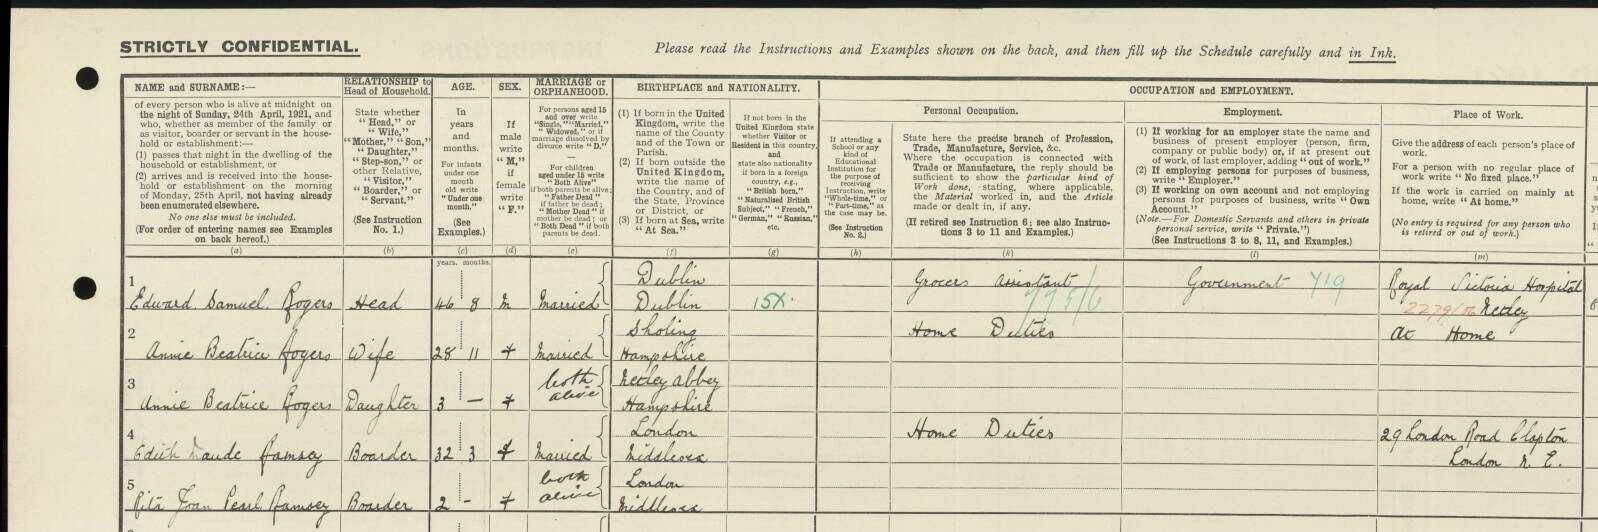 STRICTLY CONFIDENTIAL.
Please read the Instructions and Examples shown on the back, and then fill up the Schedule carefully and in Ink.
NAME and SURNAME:—
of every person who is alive at midnight on
the night of Sunday, 24th April, 1921, and
who, whether as member of the family or
as visitor, boarder or servant in the house-
hold or establishment:—
(1) passes that night in the dwelling of the
household or establishment, or
(2) arrives and is received into the house-
hold or establishment on the morning
of Monday, 25th April, not having already
been enumerated elsewhere.
No one else must be included.
(For order of entering names see Examples
on back hereof.)
(a)
RELATIONSHIP to
Head of Household.
State whether
"Head," or
"Wife,"
"Mother," "Son,"
"Daughter,"
"Step-son," or
other Relative,
"Visitor,"
"Boarder," or
"Servant."
(See Instruction
No. 1.)
(b)
AGE.
In
years
and
months.
For infants
under one
month
old write
"Under one
month."
(See
Examples.)
(c)
SEX.
If
male
write
"M,"
if
female
write
"F."
(d)
MARRIAGE or
ORPHANHOOD.
For persons aged 15
and over write
"Single," "Married,"
"Widowed," or if
marriage dissolved by
divorce write "D."
—
For children
aged under 15 write
"Both Alive"
if both parents be alive;
"Father Dead"
if father be dead;
"Mother Dead" if
mother be dead; or
"Both Dead" if both
parents be dead.
(e)
BIRTHPLACE and NATIONALITY.
(1) If born in the United
Kingdom, write the
name of the County
and of the Town or
Parish.
(2) If born outside the
United Kingdom,
write the name of
the Country, and of
the State, Province
or District, or
(3) If born at Sea, write
"At Sea."
(f)
If not born in the
United Kingdom state
whether Visitor or
Resident in this country,
and
state also nationality
if born in a foreign
country, e.g.,
"British born,"
"Naturalised British
Subject," "French,"
"German," "Russian,"
etc.
(g)
OCCUPATION and EMPLOYMENT.
If attending a
School or any
kind of
Educational
Institution for
the purpose of
receiving
Instruction, write
"Whole-time," or
"Part-time," as
the case may be.
(See Instruction
No. 2.)
(h)
Personal Occupation.
State here the precise branch of Profession,
Trade, Manufacture, Service, &c.
Where the occupation is connected with
Trade or Manufacture, the reply should be
sufficient to show the particular kind of
Work done, stating, where applicable,
the Material worked in, and the Article
made or dealt in, if any.
(If retired see Instruction 6; see also Instruc-
tions 3 to 11 and Examples.)
(k)
Employment.
(1) If working for an employer state the name and
business of present employer (person, firm,
company or public body) or, if at present out
of work, of last employer, adding "out of work."
(2) If employing persons for purposes of business,
write "Employer."
(3) If working on own account and not employing
persons for purposes of business, write "Own
Account."
(Note.—For Domestic Servants and others in private
personal service, write "Private.")
(See Instructions 3 to 8, 11, and Examples.)
(l)
Place of Work.
Give the address of each person's place of
work.
For a person with no regular place of
work write "No fixed place."
If the work is carried on mainly at
home, write "At home."
(No entry is required for any person who
is retired or out of work.)
(m)
years. months.
1
Edward Samuel Rogers Head 46 8 M Married
Dublin
Dublin
15X.
Grocers assistant
775/6
Government 719
Royal Victoria Hospital
2279/06 Netley
2
Annie Beatrice Rogers Wife 28 11 F Married
Sholing
Hampshire
Home Duties
At Home
3
Annie Beatrice Rogers Daughter 3 — F
both
alive
Netley abbey
Hampshire
4
Edith Maude Ramsey Boarder 32 3 F Married
London
Middlesex
Home Duties
29 London Road Clapton
London N.E.
5
Rita Joan Pearl Ramsey Boarder 2 - F
both
alive
London
Middlesex